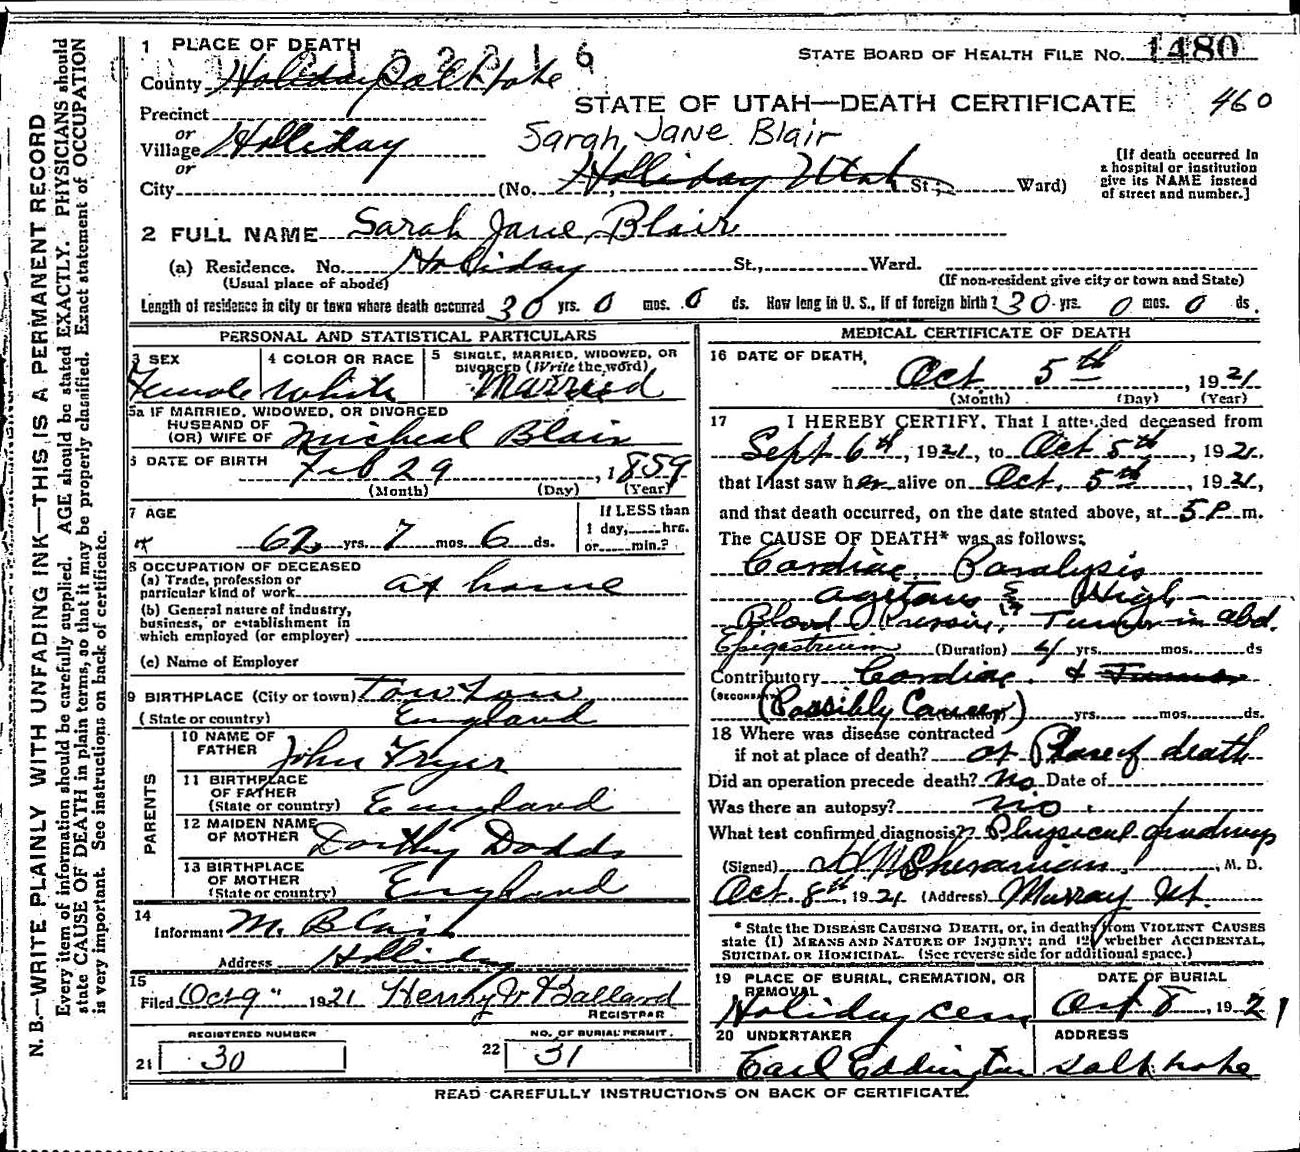 1 PLACE OF DEATH
STATE BOARD OF HEALTH FILE No. 1480
County Holiday Salt Lake
STATE OF UTAH—DEATH CERTIFICATE 460
Precinct
or
Village Holliday
Sarah Jane Blair
or
City (No. Holliday Utah St., Ward)
[If death occurred in a hospital or institution give its NAME instead of street and number.]
2 FULL NAME Sarah Jane Blair
(a) Residence. No. Holiday St., Ward.
(Usual place of abode) (If non-resident give city or town and State)
Length of residence in city or town where death occurred 30 yrs. 0 mos. 0 ds. How long in U. S., if of foreign birth? 30 yrs. 0 mos. 0 ds.
PERSONAL AND STATISTICAL PARTICULARS
3 SEX Female
4 COLOR OR RACE White
5 SINGLE, MARRIED, WIDOWED, OR DIVORCED (Write the word) Married
5a IF MARRIED, WIDOWED, OR DIVORCED
HUSBAND OF
(OR) WIFE OF Micheal Blair
6 DATE OF BIRTH Feb 29, 1859
(Month) (Day) (Year)
7 AGE
62 yrs. 7 mos. 6 ds.
If LESS than
1 day, hrs.
or min.?
8 OCCUPATION OF DECEASED
(a) Trade, profession or
particular kind of work at home
(b) General nature of industry,
business, or establishment in
which employed (or employer)
(c) Name of Employer
9 BIRTHPLACE (City or town) Tow Low
(State or country) England
PARENTS
10 NAME OF
FATHER John Fryer
11 BIRTHPLACE
OF FATHER
(State or country) England
12 MAIDEN NAME
OF MOTHER Dorthy Dodds
13 BIRTHPLACE
OF MOTHER
(State or country) England
14
Informant M. Blair
Address Holliday
15
Filed Oct 9" 1921 Henry V. Ballard
REGISTRAR
REGISTERED NUMBER
21 30
NO. OF BURIAL PERMIT.
22 31
MEDICAL CERTIFICATE OF DEATH
16 DATE OF DEATH,
Oct 5th, 1921
(Month) (Day) (Year)
17 I HEREBY CERTIFY, That I attended deceased from
Sept 6th, 1921, to Oct 5th, 1921.
that I last saw her alive on Oct. 5th, 1921,
and that death occurred, on the date stated above, at 5 P. m.
The CAUSE OF DEATH* was as follows:
Cardiac Paralysis
agetans & High
Blood Pressure, Tumor in abd.
Epigestrium (Duration) 4 yrs. mos. ds
Contributory Cardiac & Tumor
(SECONDARY) (Possibly Cancer) yrs. mos. ds.
18 Where was disease contracted
if not at place of death? at Place of death
Did an operation precede death? no Date of
Was there an autopsy? no
What test confirmed diagnosis? Physical findings
(Signed) M. D.
Oct. 8th, 1921 (Address) Murray Ut.
* State the DISEASE CAUSING DEATH, or, in deaths from VIOLENT CAUSES
state (1) MEANS AND NATURE OF INJURY; and (2) whether ACCIDENTAL,
SUICIDAL OR HOMICIDAL. (See reverse side for additional space.)
19 PLACE OF BURIAL, CREMATION, OR
REMOVAL
Holiday cem
DATE OF BURIAL
Oct 8, 1921
20 UNDERTAKER
Earl Eddington
ADDRESS
Salt Lake
READ CAREFULLY INSTRUCTIONS ON BACK OF CERTIFICATE.
N. B.—WRITE PLAINLY WITH UNFADING INK—THIS IS A PERMANENT RECORD
Every item of information should be carefully supplied. AGE should be stated EXACTLY. PHYSICIANS should
state CAUSE OF DEATH in plain terms, so that it may be properly classified. Exact statement of OCCUPATION
is very important. See instructions on back of certificate.